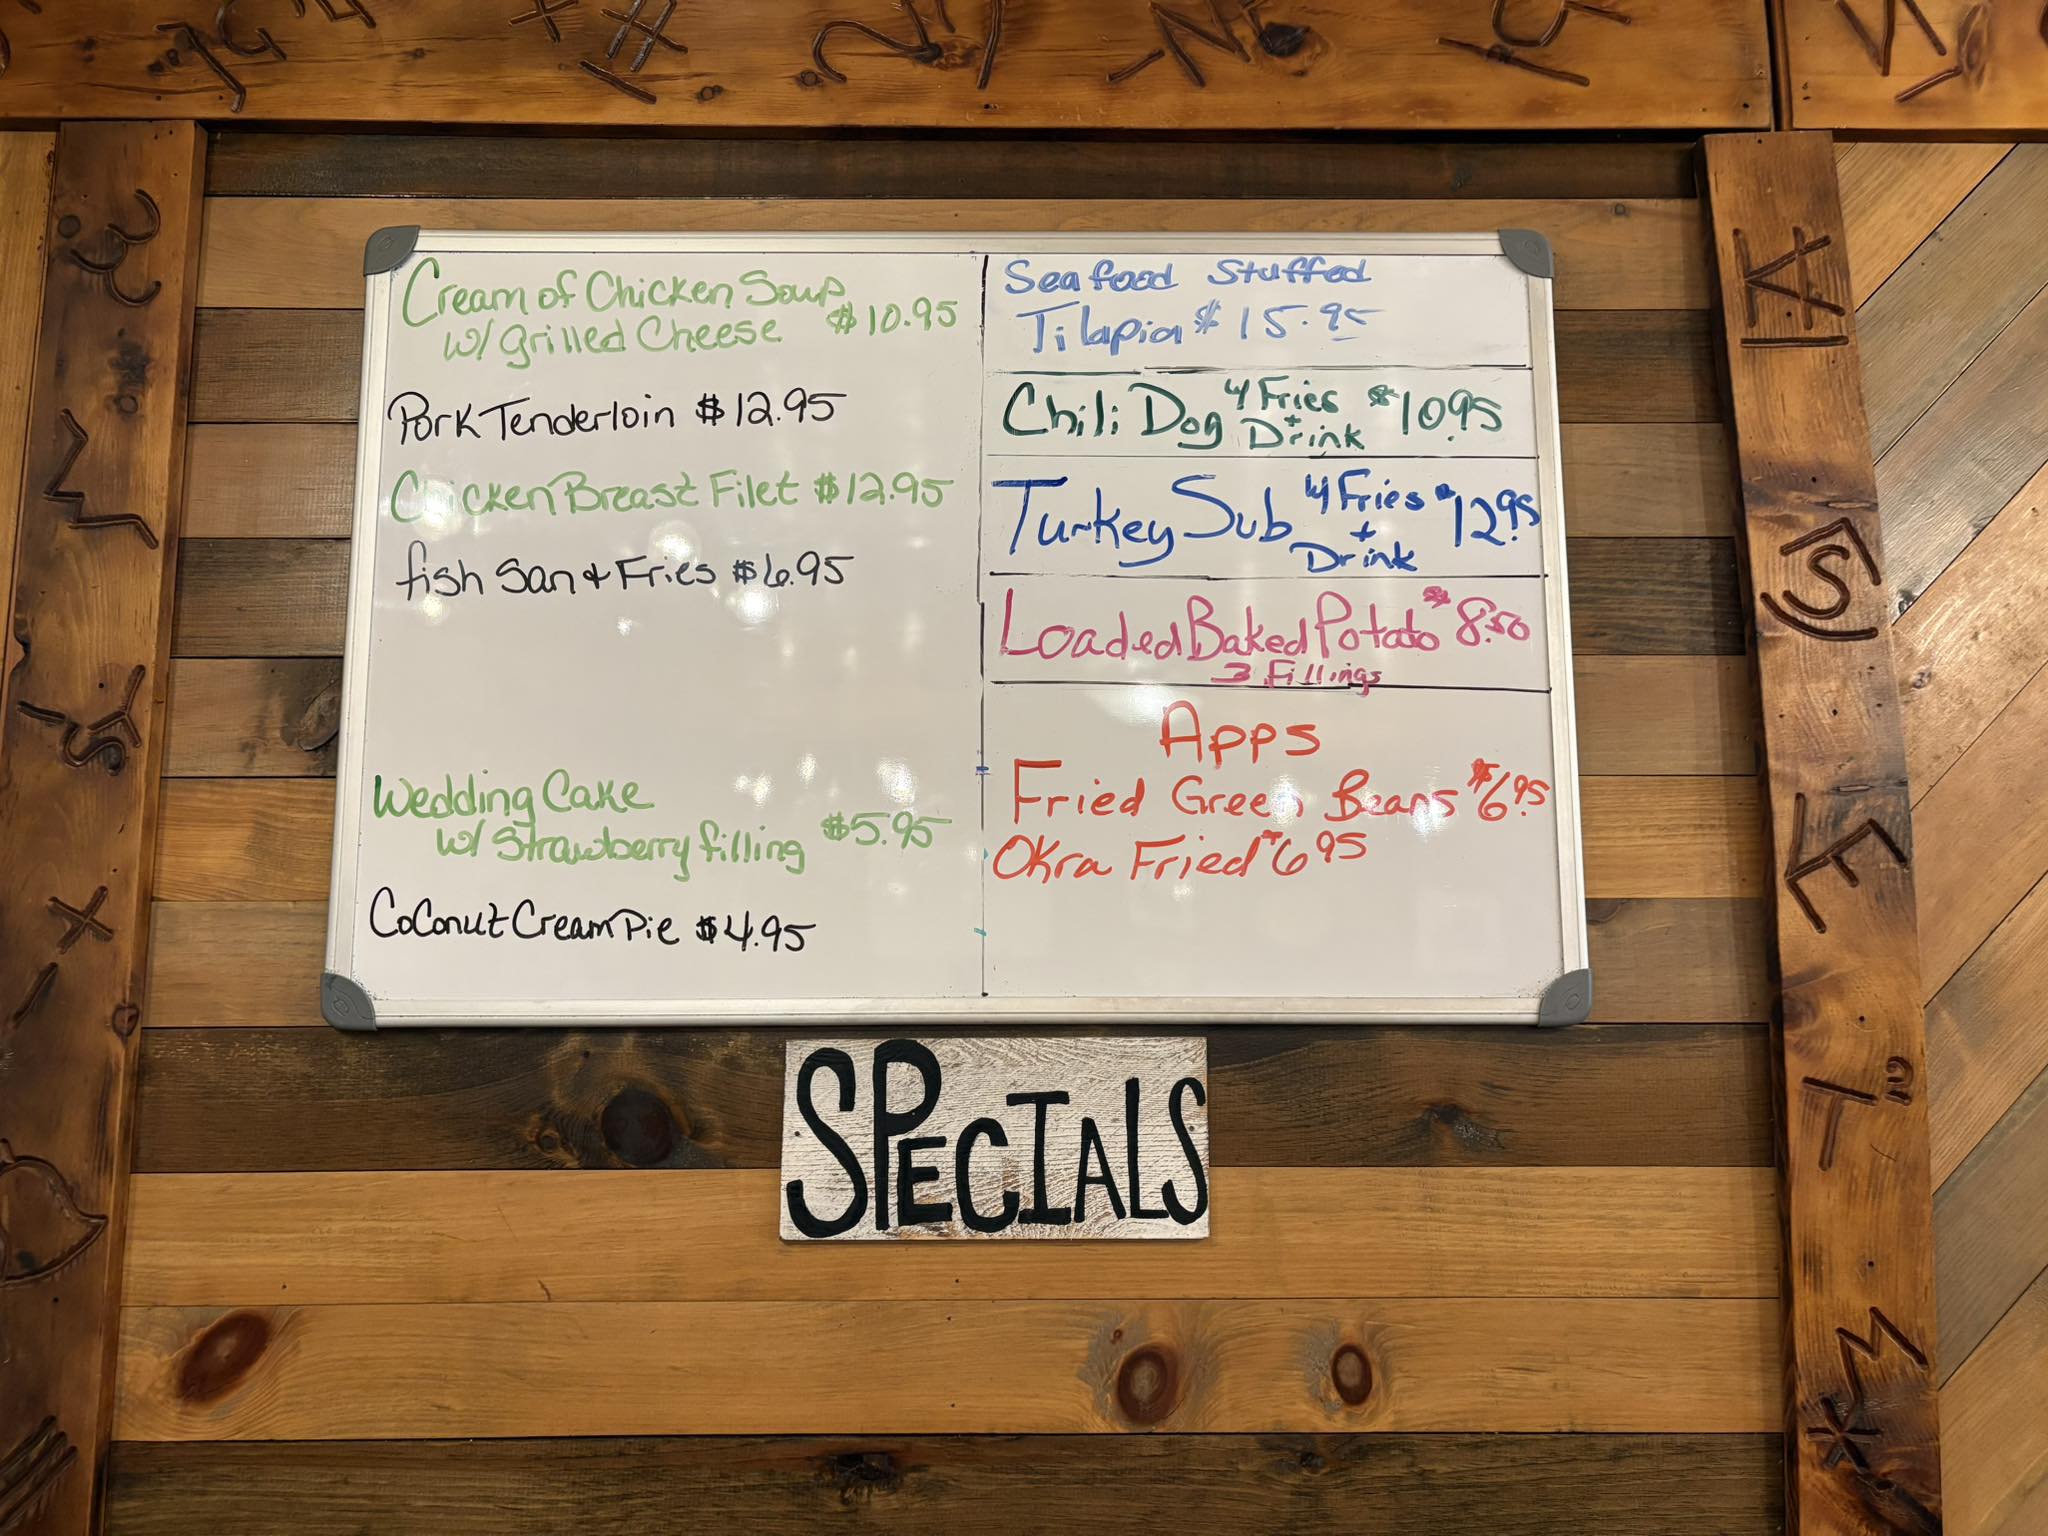 Cream of Chicken Soup
w/ grilled Cheese $10.95
Pork Tenderloin $12.95
Chicken Breast Filet $12.95
fish San + Fries $6.95
Wedding Cake
w/ Strawberry filling $5.95
Coconut Cream Pie $4.95
Seafood Stuffed
Tilapia $15.95
Chili Dog w/ Fries + Drink $10.95
Turkey Sub w/ Fries + Drink $12.95
Loaded Baked Potato $8.50
3 Fillings
Apps
Fried Green Beans $6.95
Okra Fried $6.95
SPECIALS